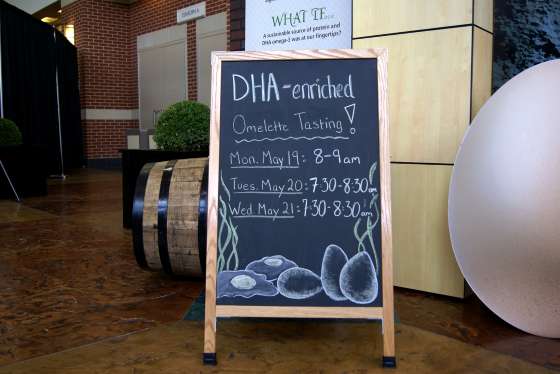 WHAT IF...
A sustainable source of protein and
DHA omega-3 was at our fingertips?
DHA-enriched
Omelette Tasting!
Mon. May 19: 8-9am
Tues. May 20: 7:30-8:30am
Wed May 21: 7:30-8:30am